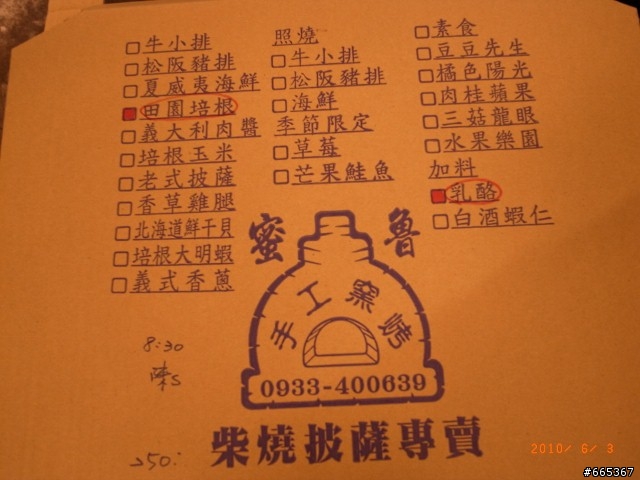 □牛小排
□松阪豬排
□夏威夷海鮮
■田園培根
□義大利肉醬
□培根玉米
□老式披薩
□香草雞腿
□北海道鮮干貝
□培根大明蝦
□義式香蔥
照燒
□牛小排
□松阪豬排
□海鮮
季節限定
□草莓
□芒果鮭魚
□素食
□豆豆先生
□橘色陽光
□肉桂蘋果
□三菇龍眼
□水果樂園
加料
■乳酪
□白酒蝦仁
蜜 魯
手工窯烤
0933-400639
柴燒披薩專賣
8:30
陳S
250:
2010/ 6/ 3
#665367